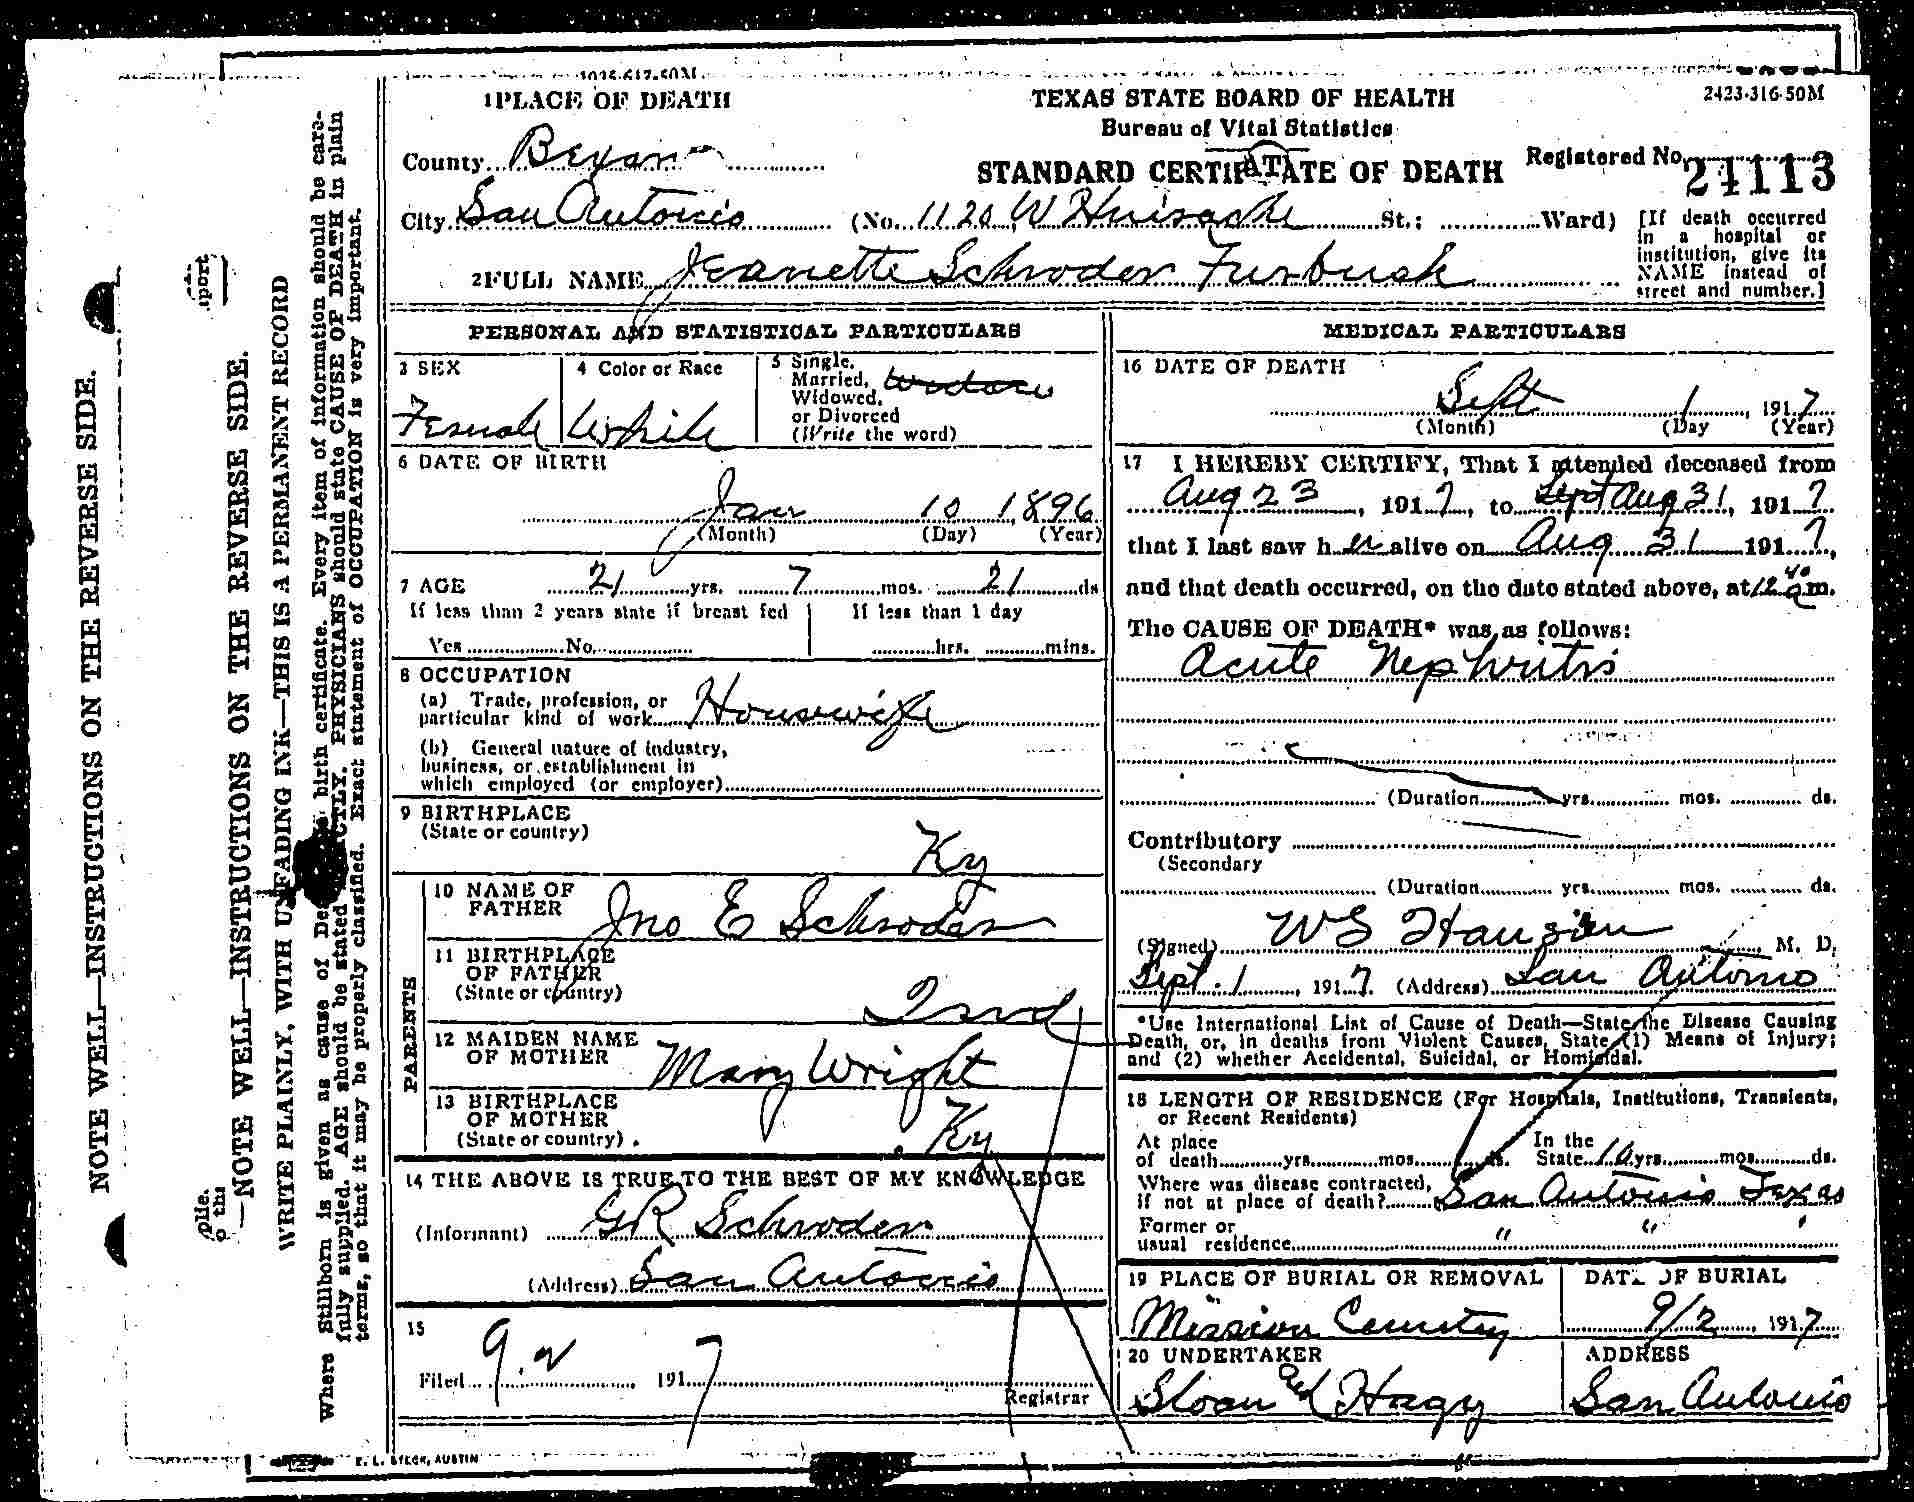 1PLACE OF DEATH
TEXAS STATE BOARD OF HEALTH
2423-316-50M
Bureau of Vital Statistics
County Bexar
STANDARD CERTIFICATE OF DEATH
Registered No. 24113
City San Antonio (No. 1120 W Huisache St.; Ward)
[If death occurred
in a hospital or
institution, give its
NAME instead of
street and number.]
2FULL NAME Jeanette Schroder Furbush
PERSONAL AND STATISTICAL PARTICULARS
3 SEX
Female
4 Color or Race
White
5 Single,
Married,
Widowed,
or Divorced
(Write the word)
6 DATE OF BIRTH
Jan 10 1896
(Month) (Day) (Year)
7 AGE 21 yrs. 7 mos. 21 ds
If less than 2 years state if breast fed
Yes No
If less than 1 day
hrs. mins.
8 OCCUPATION
(a) Trade, profession, or
particular kind of work Housewife
(b) General nature of industry,
business, or establishment in
which employed (or employer)
9 BIRTHPLACE
(State or country)
Ky
PARENTS
10 NAME OF
FATHER Jno E Schroder
11 BIRTHPLACE
OF FATHER
(State or country)
12 MAIDEN NAME
OF MOTHER Mary Wright
13 BIRTHPLACE
OF MOTHER
(State or country) Ky
14 THE ABOVE IS TRUE TO THE BEST OF MY KNOWLEDGE
(Informant) GR Schroder
(Address) San Antonio
15
Filed 9.2 1917
Registrar
MEDICAL PARTICULARS
16 DATE OF DEATH
Sept 1, 1917
(Month) (Day (Year)
17 I HEREBY CERTIFY, That I attended deceased from
Aug 23, 1917, to Sept Aug 31, 1917
that I last saw her alive on Aug 31 1917,
and that death occurred, on the date stated above, at 12 40 a m.
The CAUSE OF DEATH* was as follows:
Acute Nephritis
(Duration yrs. mos. ds.
Contributory
(Secondary
(Duration yrs. mos. ds.
(Signed) M. D.
Sept. 1, 1917. (Address) San Antonio
*Use International List of Cause of Death—State the Disease Causing
Death, or, in deaths from Violent Causes, State (1) Means of Injury;
and (2) whether Accidental, Suicidal, or Homicidal.
18 LENGTH OF RESIDENCE (For Hospitals, Institutions, Transients,
or Recent Residents)
At place
of death yrs. mos. ds.
In the
State 10 yrs. mos. ds.
Where was disease contracted,
if not at place of death? San Antonio Texas
Former or
usual residence " " "
19 PLACE OF BURIAL OR REMOVAL
Mission Cemetery
DATE OF BURIAL
9/2, 1917
20 UNDERTAKER
Sloan and Hagy
ADDRESS
San Antonio
NOTE WELL—INSTRUCTIONS ON THE REVERSE SIDE.
—NOTE WELL—INSTRUCTIONS ON THE REVERSE SIDE.
WRITE PLAINLY, WITH UNFADING INK—THIS IS A PERMANENT RECORD
Where Stillborn is given as cause of birth certificate. Every item of information should be care-
fully supplied. AGE should be stated PHYSICIANS should state CAUSE OF DEATH in plain
terms, so that it may be properly classified. Exact statement of OCCUPATION is very important.
AUSTIN